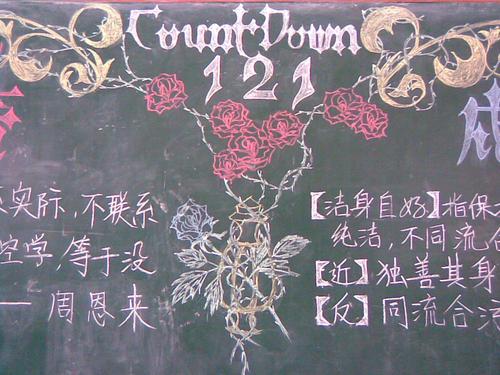 CountDown
121
实际,不联系
学,等于没
—— 周恩来
【洁身自好】指保
纯洁,不同流合
【近】独善其身
【反】同流合